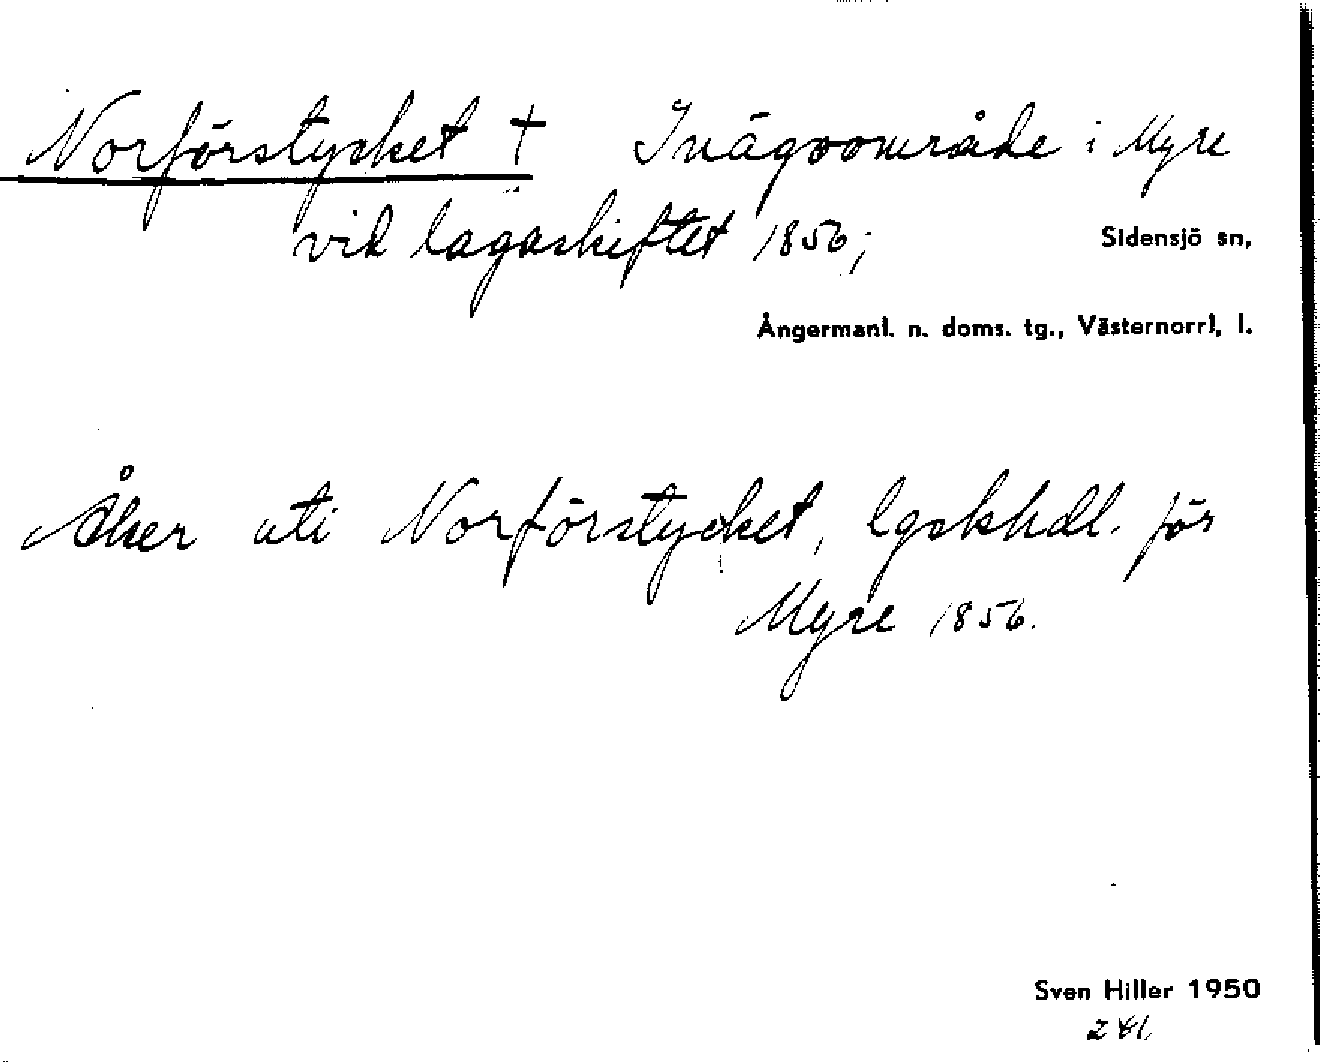 Norförstycket † Inägoområde i Myre
vid lagaskiftet 1856;
Sidensjö sn,
Ångermanl. n. doms. tg., Västernorrl. l.
Åker uti Norförstycket, lgskhdl. för
Myre 1856.
Sven Hiller 1950